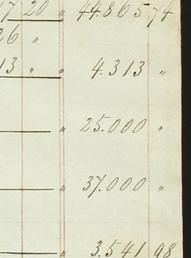 17 20 " 44.865 74
26 "
13 " " 4.313 "
" 25.000 "
" 37.000 "
" 3.541 98